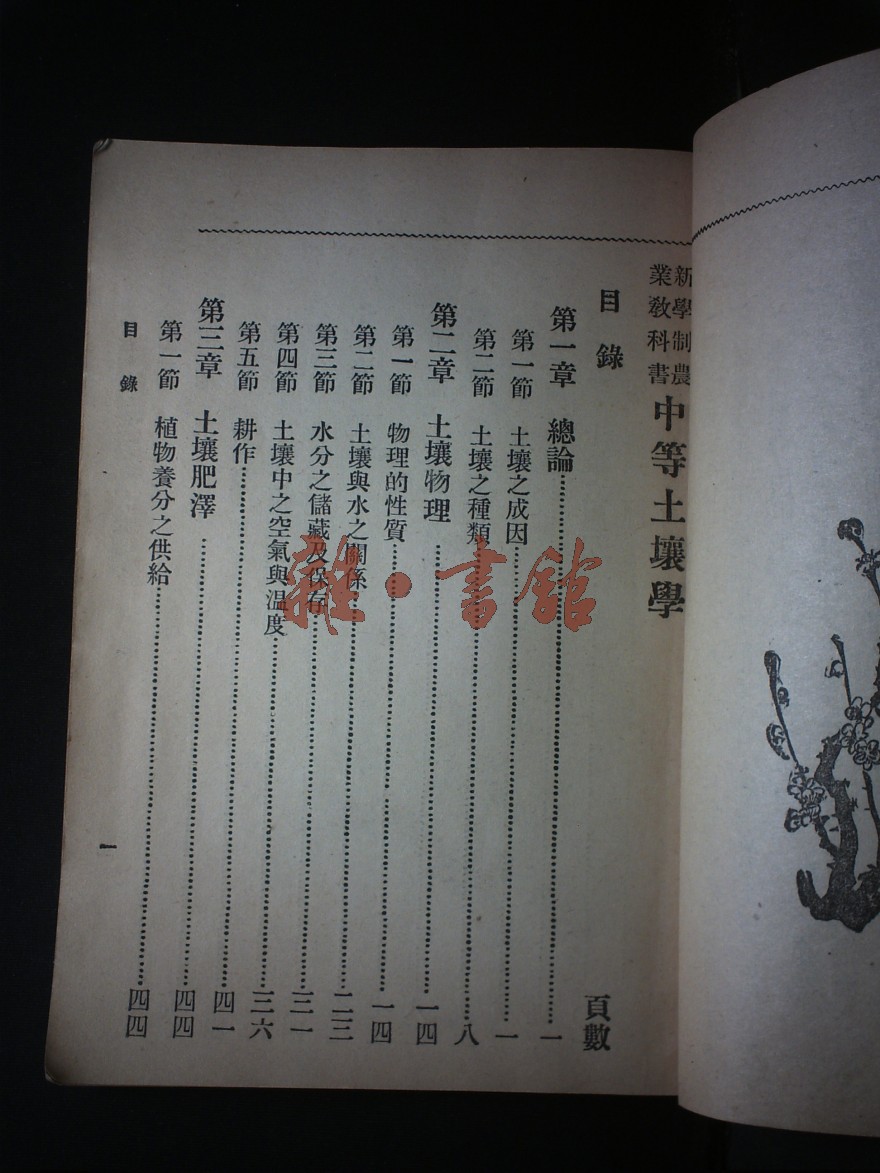 新學制農
業教科書
中等土壤學
目錄
頁數
第一章 總論 一
第一節 土壤之成因 一
第二節 土壤之種類 八
第二章 土壤物理 一四
第一節 物理的性質 一四
第二節 土壤與水之關係 二三
第三節 水分之儲藏及保存 三一
第四節 土壤中之空氣與温度 三六
第五節 耕作 四一
第三章 土壤肥澤 四四
第一節 植物養分之供給 四四
目錄
一
雜·書館